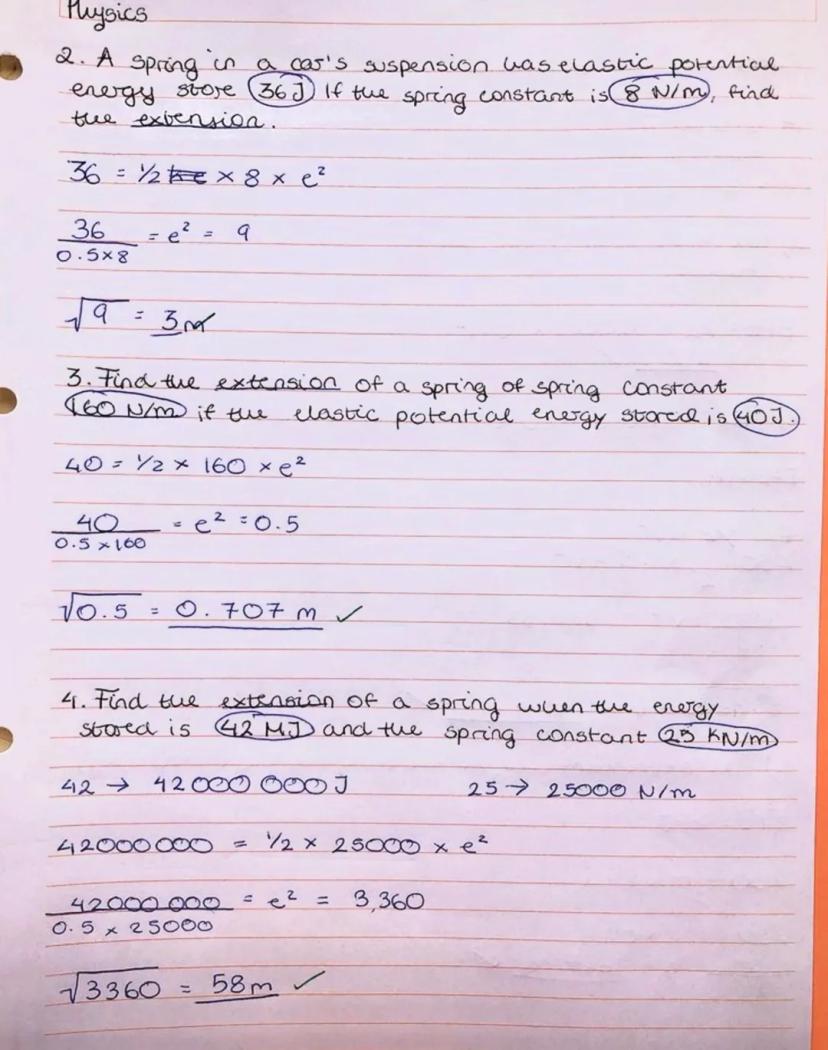 Physics
2. A spring in a car's suspension has elastic potential
energy store 36 J If the spring constant is 8 N/m, find
the extension.
36 = 1/2 × 8 × e²
36 / 0.5×8 = e² = 9
√9 = 3m
3. Find the extension of a spring of spring constant
160 N/m if the elastic potential energy stored is 40J.
40 = 1/2 × 160 × e²
40 / 0.5 × 160 = e² = 0.5
√0.5 = 0.707 m ✓
4. Find the extension of a spring when the energy
stored is 42 MJ and the spring constant 25 KN/m
42 → 42000 000J 25 → 25000 N/m
42000000 = 1/2 × 25000 × e²
42000 000 / 0.5 × 25000 = e² = 3,360
√3360 = 58m ✓